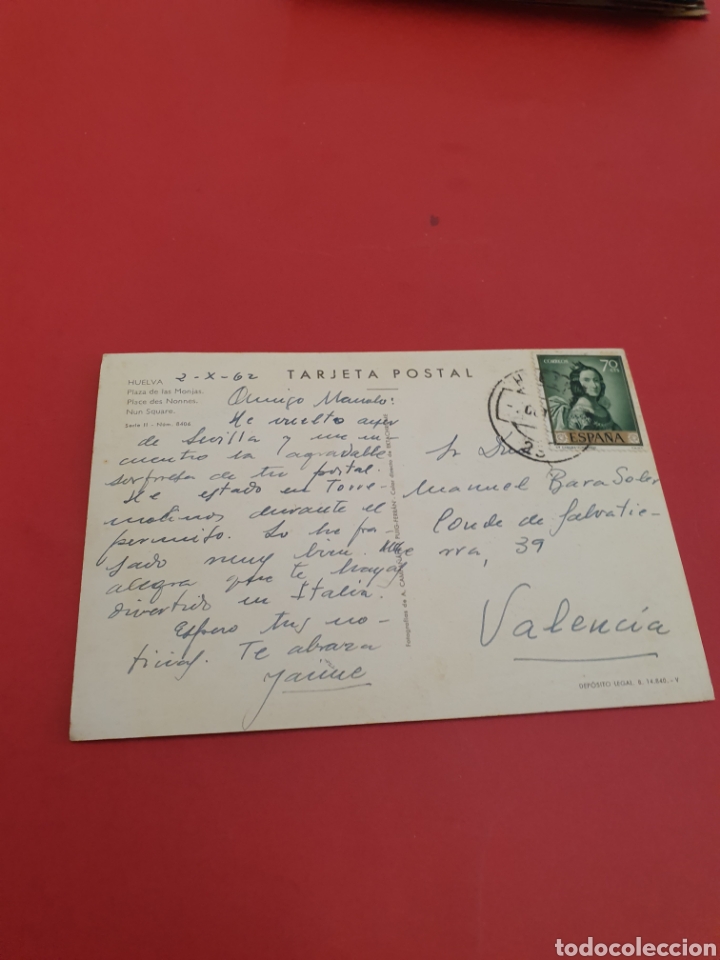 HUELVA
Plaza de las Monjas.
Place des Nonnes.
Nun Square.
Serie II - Núm. 8406
2-X-62
TARJETA POSTAL
Querido Manolo:
He vuelto ayer
de Sevilla y me en-
cuentro la agradable
sorpresa de tu postal.
He estado en Torre
molinos durante el
permiso. Lo he pa
sado muy bien. Me
alegra que te hayas
divertido en Italia.
Espero tus no-
ticias. Te abraza
Jaime
CORREOS
70
ESPAÑA
Sr Don
Manuel Bara Soler
Conde de Salvatie-
rra, 39
Valencia
DEPÓSITO LEGAL, B. 14.840.-V
todocoleccion